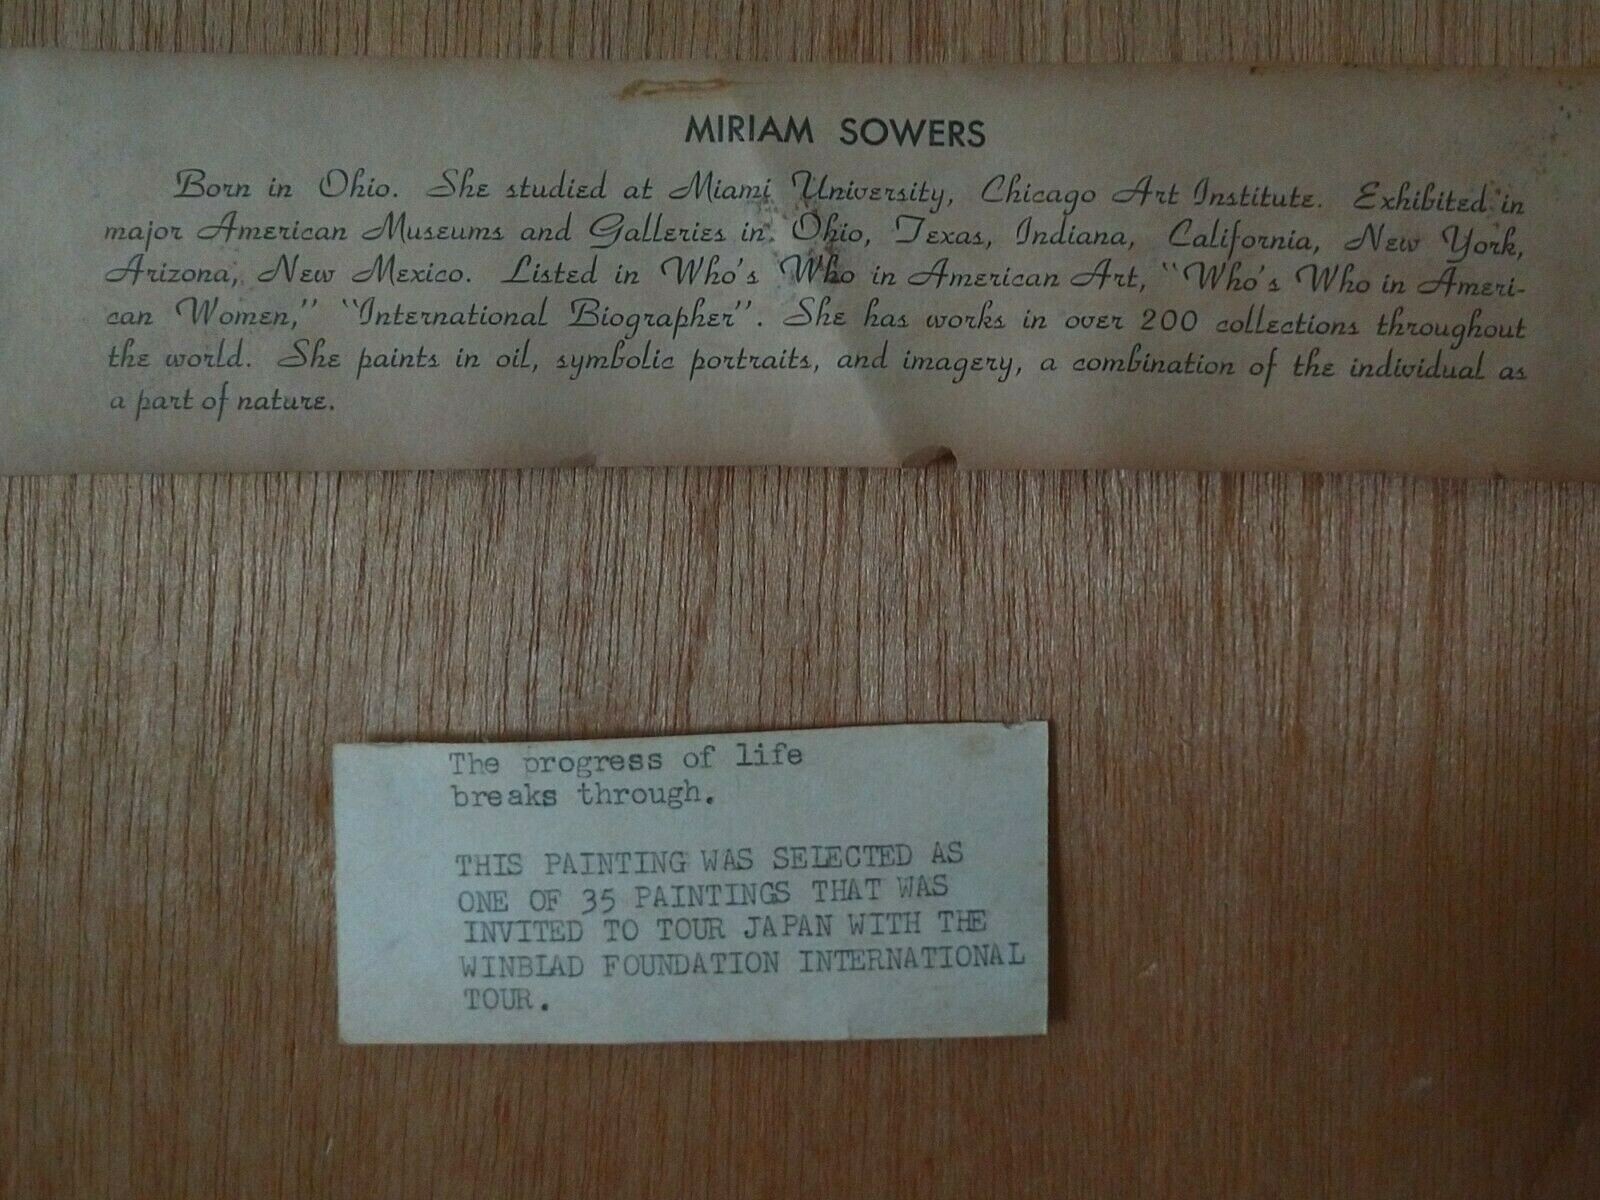 MIRIAM SOWERS
Born in Ohio. She studied at Miami University, Chicago Art Institute. Exhibited in
major American Museums and Galleries in Ohio, Texas, Indiana, California, New York,
Arizona, New Mexico. Listed in Who's Who in American Art, "Who's Who in Ameri-
can Women," "International Biographer". She has works in over 200 collections throughout
the world. She paints in oil, symbolic portraits, and imagery, a combination of the individual as
a part of nature.
The progress of life
breaks through.
THIS PAINTING WAS SELECTED AS
ONE OF 35 PAINTINGS THAT WAS
INVITED TO TOUR JAPAN WITH THE
WINBLAD FOUNDATION INTERNATIONAL
TOUR.